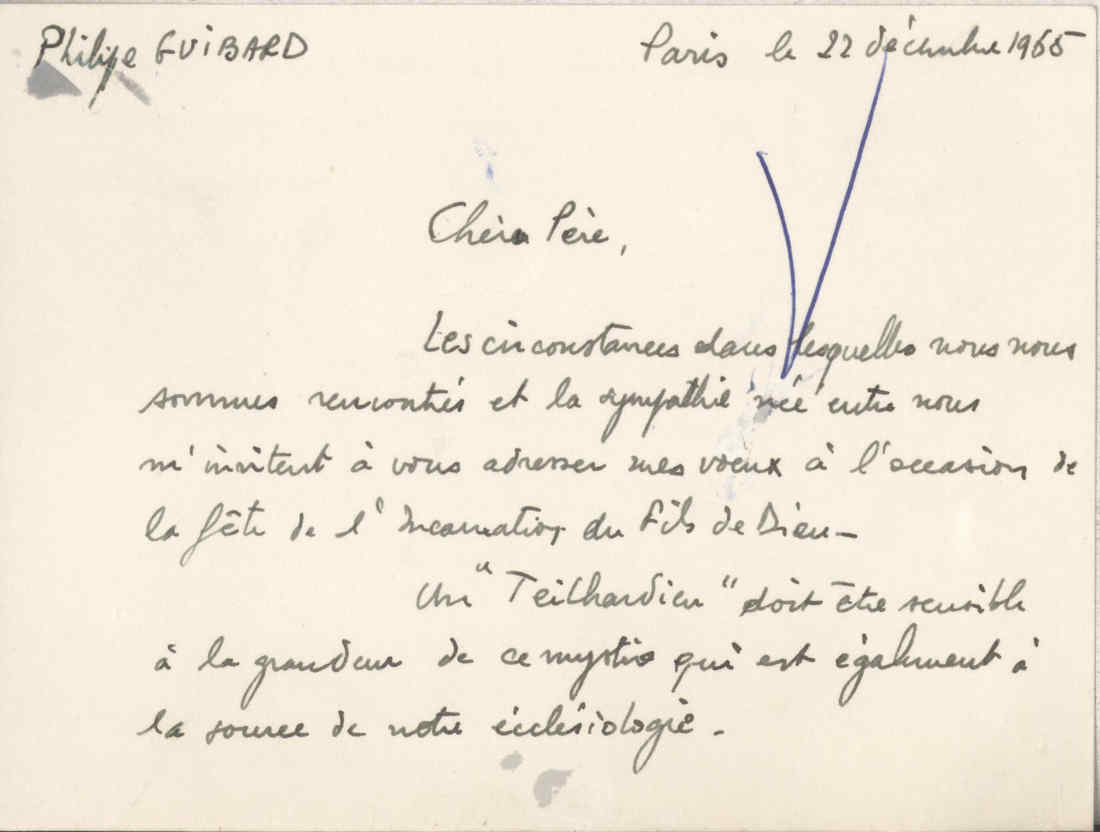 Philipe GUIBARD
Paris le 22 décembre 1965
Cher Père,
Les circonstances dans lesquelles nous nous
sommes rencontrés et la sympathie née entre nous
m'invitent à vous adresser mes voeux à l'occasion de
la fête de l'Incarnation du Fils de Dieu -
Un "Teilhardien" doit être sensible
à la grandeur de ce mystère qui est également à
la source de notre écclésiologie.